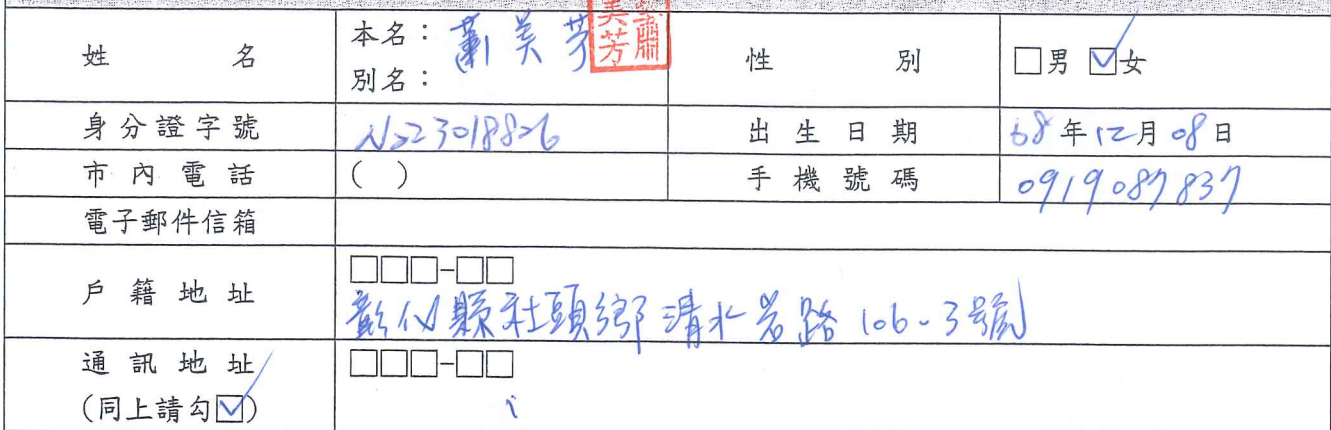 姓 名 本名：蕭美芳 蕭美芳 性 別 □男 ☑女
別名：
身分證字號 N223018826 出生日期 68年12月08日
市內電話 ( ) 手機號碼 0919087837
電子郵件信箱
戶籍地址 □□□-□□
彰化縣社頭鄉清水岩路106-3號
通訊地址 □□□-□□
(同上請勾☑)